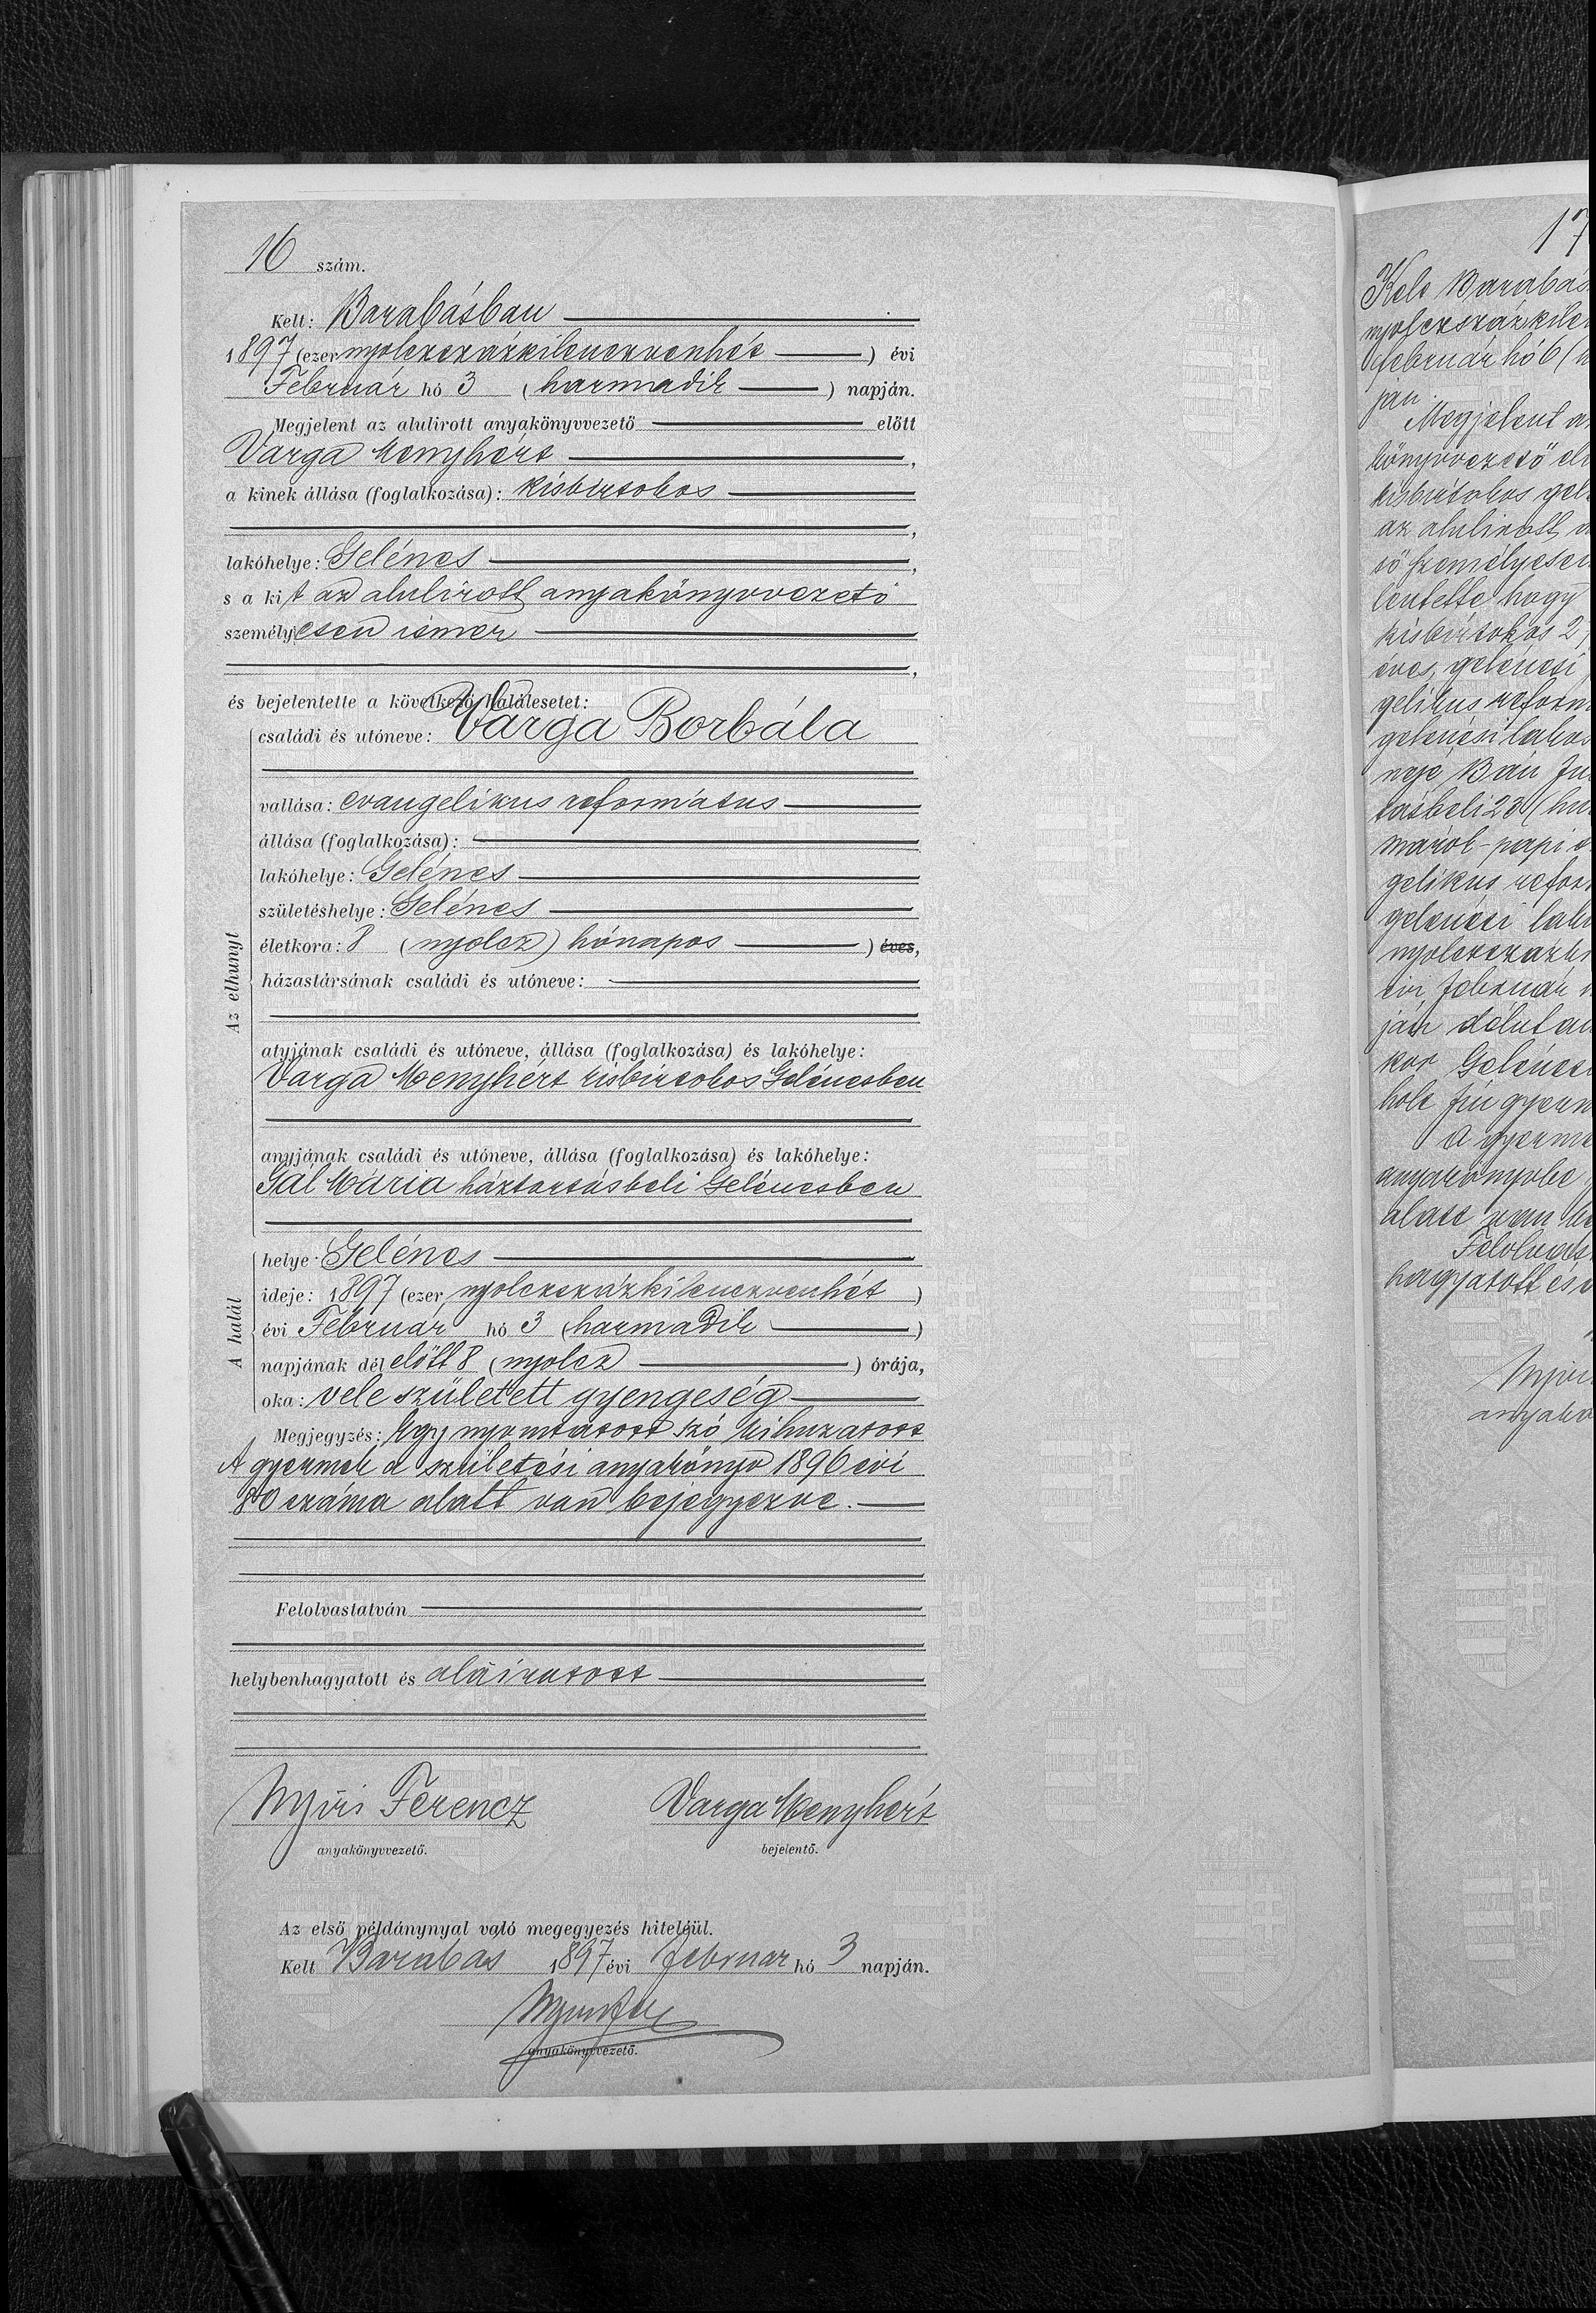 16 szám.
Kelt: Barabásban
1897 (ezer nyolczszázkilenczvenhét) évi
Február hó 3 (harmadik) napján.
Megjelent az alulirott anyakönyvvezető előtt
Varga Menyhért,
a kinek állása (foglalkozása): kisbirtokos
,
lakóhelye: Gelénes,
s a kit az alulirott anyakönyvvezető
személyesen ismer
,
és bejelentette a következő halálesetet:
Az elhunyt
családi és utóneve: Varga Borbála
vallása: evangelikus református
állása (foglalkozása):
lakóhelye: Gelénes
születéshelye: Gelénes
életkora: 8 (nyolcz) hónapos ) éves,
házastársának családi és utóneve:
atyjának családi és utóneve, állása (foglalkozása) és lakóhelye:
Varga Menyhért kisbirtokos Gelénesben
anyjának családi és utóneve, állása (foglalkozása) és lakóhelye:
Gál Mária háztartásbeli Gelénesben
A halál
helye: Gelénes
ideje: 1897 (ezer nyolczszázkilenczvenhét)
évi Február hó 3 (harmadik)
napjának dél előtt 8 (nyolcz) órája,
oka: vele született gyengeség
Megjegyzés: Egy nyomtatott szó kihuzatott
A gyermek a születési anyakönyv 1896 évi
80 száma alatt van bejegyezve.
Felolvastatván
helybenhagyatott és aláiratott
Nyiri Ferencz
anyakönyvvezető.
Varga Menyhért
bejelentő.
Az első példánynyal való megegyezés hiteléül.
Kelt Barabás 1897 évi február hó 3 napján.
anyakönyvvezető.
17
Kelt Barabás
nyolczszázkile
február hó 6 (h
ján.
Megjelent a
könyvvezető el
kisbirtokos gel
az alulirott a
tő személyesen
lentette hogy
kisbirtokos 2
éves, gelénesi
gelikus reform
gelénesi lako
neje Bán Ju
tásbeli 23 (hu
márok-papi e
gelikus refor
gelénesi lak
nyolczszázk
évi február
ján délutá
kor Gelénes
holt fiu gyerm
A gyerme
anyakönyvbe
alatt van be
Felolvas
hagyatott és a
Nyiri
anyakö